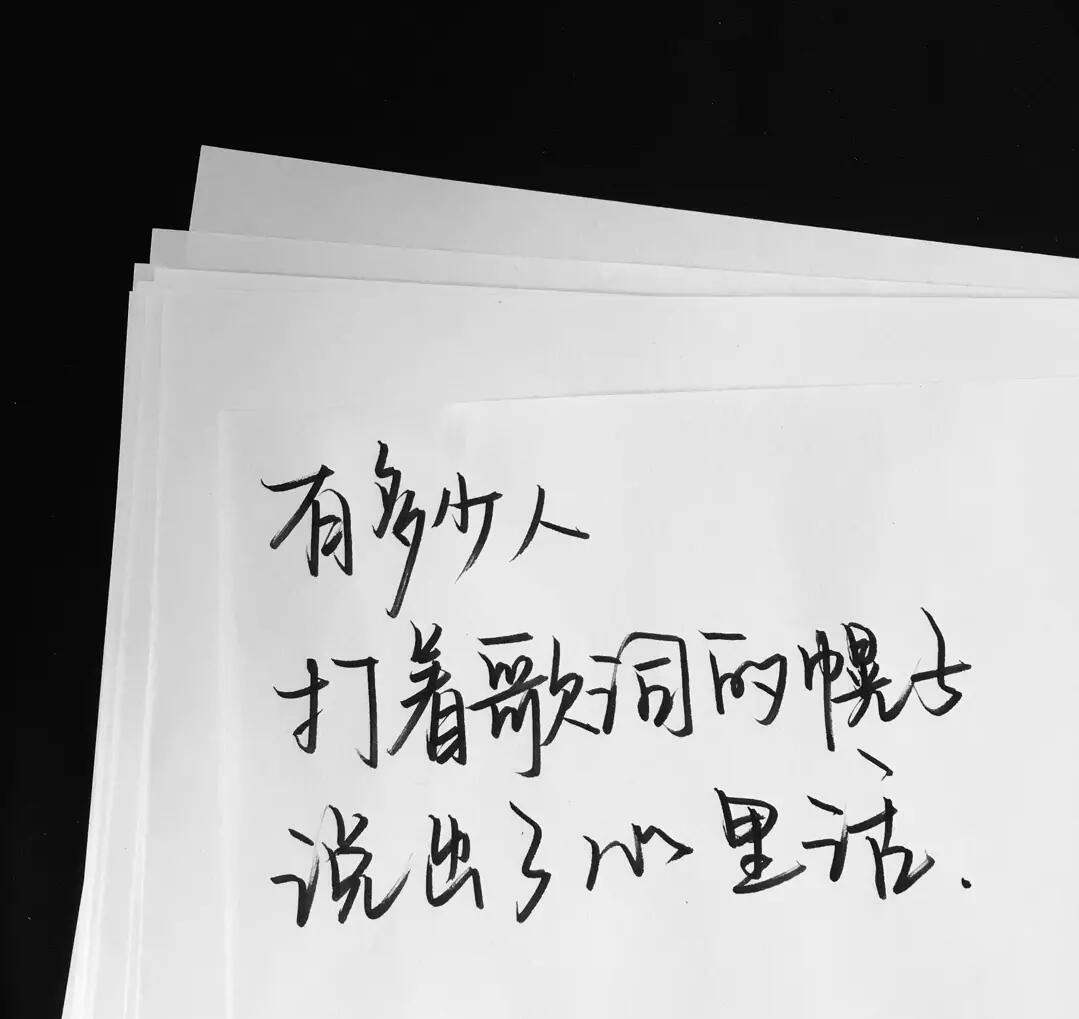 有多少人
打着歌词的幌子
说出了心里话.